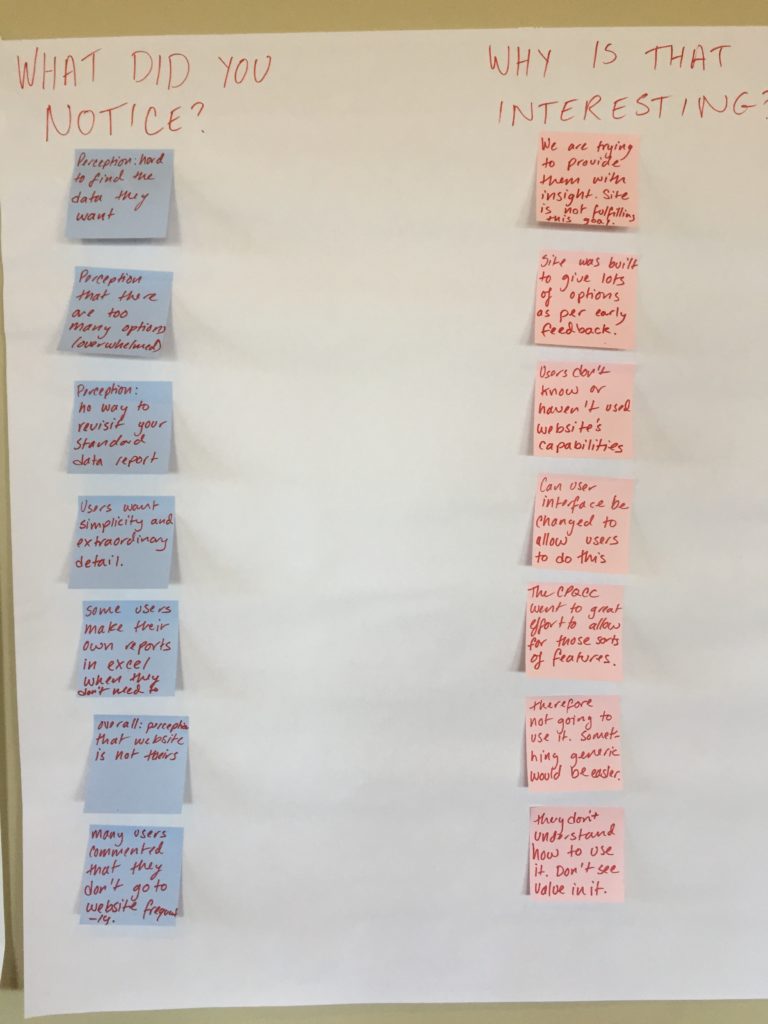 WHAT DID YOU
NOTICE?
Perception: hard
to find the
data they
want
Perception
that there
are too
many options
(overwhelmed)
Perception:
no way to
revisit your
standard
data report
Users want
simplicity and
extraordinary
detail.
some users
make their
own reports
in excel
when they
don't need to
overall: perception
that website
is not theirs
many users
commented
that they
don't go to
website frequent
-ly.
WHY IS THAT
INTERESTING?
We are trying
to provide
them with
insight. Site
is not fulfilling
this goal.
Site was built
to give lots
of options
as per early
feedback.
Users don't
know or
haven't used
website's
capabilities
Can user
interface be
changed to
allow users
to do this
The CPQCC
went to great
effort to allow
for those sorts
of features.
therefore
not going to
use it. Somet-
hing generic
would be easier.
they don't
understand
how to use
it. Don't see
value in it.